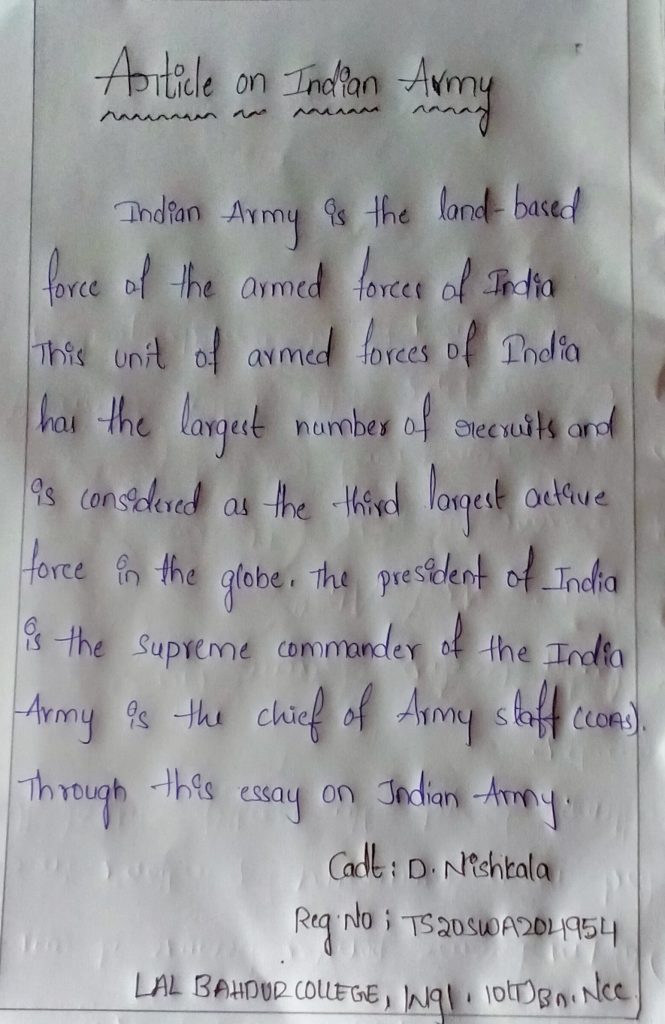 Article on Indian Army
Indian Army is the land-based
force of the armed forces of India
This unit of armed forces of India
has the largest number of recruits and
is considered as the third largest active
force in the globe. The president of India
is the supreme commander of the India
Army is the chief of Army staff (COAS).
Through this essay on Indian Army.
Cadt : D. Nishkala
Reg. No : TS20SWA204954
LAL BAHDUR COLLEGE, Wgl. 10(T) Bn. Ncc